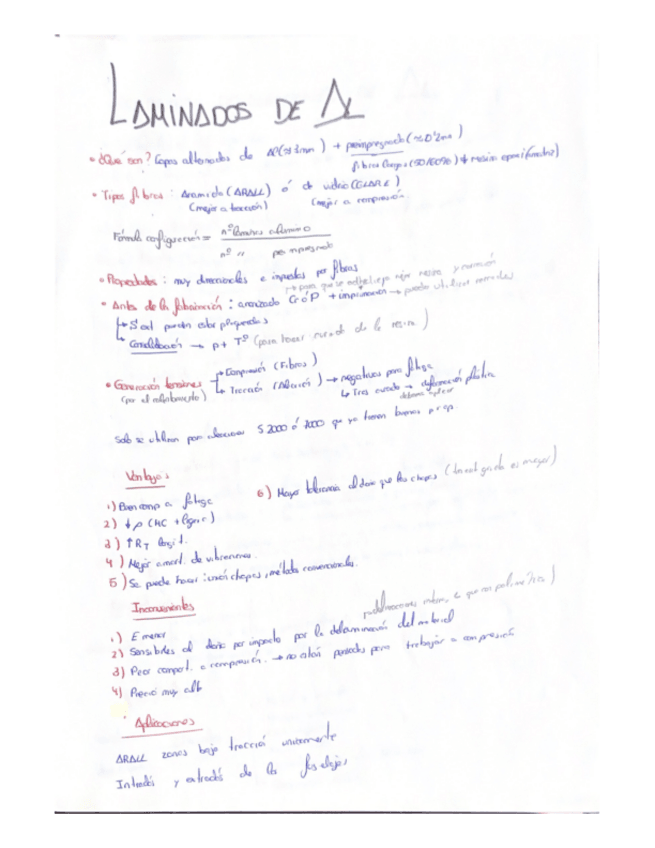 LAMINADOS DE AL
• ¿Qué son? Capas alternadas de Al (≈ 3mm) + preimpregnado (≈ 0'2mm)
fibras largas (50/60%) + resina epoxi
• Tipos fibras: Aramida (ARALL) ó de vidrio (GLARE)
(mejor a tracción) (mejor a compresión)
Fórmula configuración = nº láminas aluminio
nº " preimpregnado
• Propiedades: muy direccionales e impuestas por fibras
→ para que se adhiera mejor resina y corrosión
• Antes de la fabricación: anodizado Cr ó P + imprimación → puedo utilizar
↳ S'ext pueden estar
↳ Consolidación → p + Tª (para hacer curado de la resina)
• Generación tensiones → Compresión (Fibras)
(por el enfriamiento) ↳ Tracción (Aluminio) → negativas para fatiga
↳ Tras curado → deformación plástica
Solo se utilizan para aleaciones S 2000 ó 7000 que ya tienen buenas prop.
Ventajas
1) Buen comp a fatiga
2) ↓ρ (MC + ligero)
3) ↑RT longit.
4) Mejor amort. de vibraciones.
5) Se puede hacer: unión chapas, método convencionales.
6) Mayor tolerancia al daño que las chapas
Inconvenientes
1) E menor
2) Sensibles al daño por impacto por la delaminación del material
3) Peor comport. a compresión. → no están pensados para trabajar a compresión
4) Precio muy alto
Aplicaciones
ARALL zonas bajo tracció unicamente
Intradós y extradós de los fuselajes